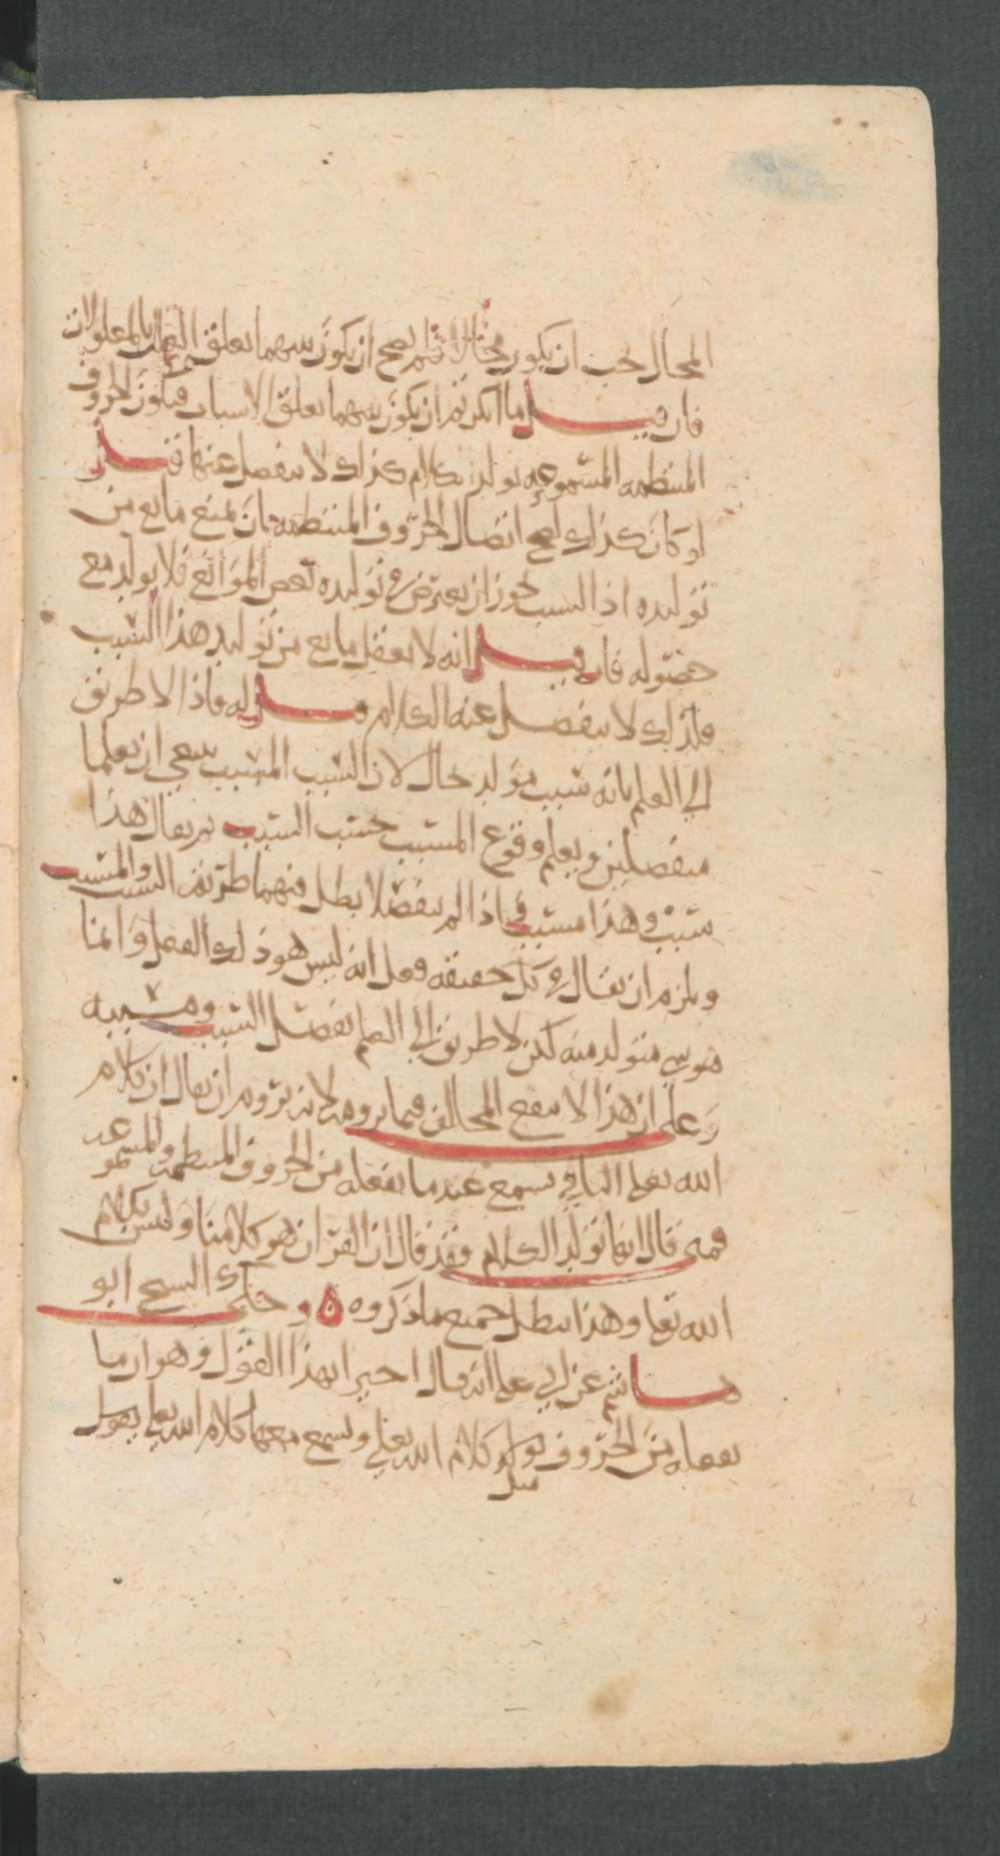 المحال حب ان يكون محالا ثم يصح ان يكون بينهما تعلق العلل بالمعلولات
فان قيل ما انكرتم ان يكون بينهما تعلق الاسباب فيكون الحروف
المنتظمه المسموعه تولد كلام كذلك لا ينفصل عنها قيل
لو كان كذلك لصح اتصال الحروف المنتظمه بان يمنع مانع من
توليده اذ السبب يجوز ان يعترض في توليده بعض الموانع فلا يولد مع
حصوله فان قيل انه لا يعقل مانع من توليد هذا السبب
فلذلك لا ينفصل عنه الكلام قيل له فاذا لا طريق
الى العلم بانه سبب مولد حال لان السبب المسبب ينبغي ان يعلما
منفصلين ويعلم وقوع المسبب حسب السبب ثم يقال هذا
سبب وهذا مسبب فاذا لم ينفصلا بطل فيهما طريقه السبب والمسبب
ويلزم ان يقال في كل حقيقه فعل انه ليس هو ذلك الفعل وانما
هو شي متولد منه لكن لا طريق الى العلم بفصل السبب ومسببه
وعلى ان هذا لا ينفع المخالف فيما يرومه لانه يروم ان يقال ان كلام
الله تعلى الباقي يسمع عندما نفعله من الحروف المنتظمه والمسموعه
فمتى قال انها تولد الكلام فقد قال ان القران هو كلامنا وليس بكلام
الله تعا وهذا يبطل جميع ما ذكروه ه وحكى الشيخ ابو
هاشم عن ابي علي انه قال اخيرا بهذا القول وهو ان ما
نفعله من الحروف يولد كلام الله تعلى ويسمع معها كلام الله تعلى يقول